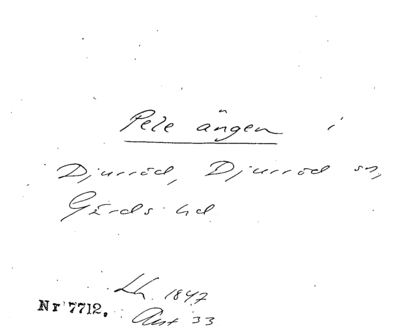 Pele ängen i
Djurröd, Djurröd sn,
Gärds hd
Lh. 1847
Nr 7712. Akt 33